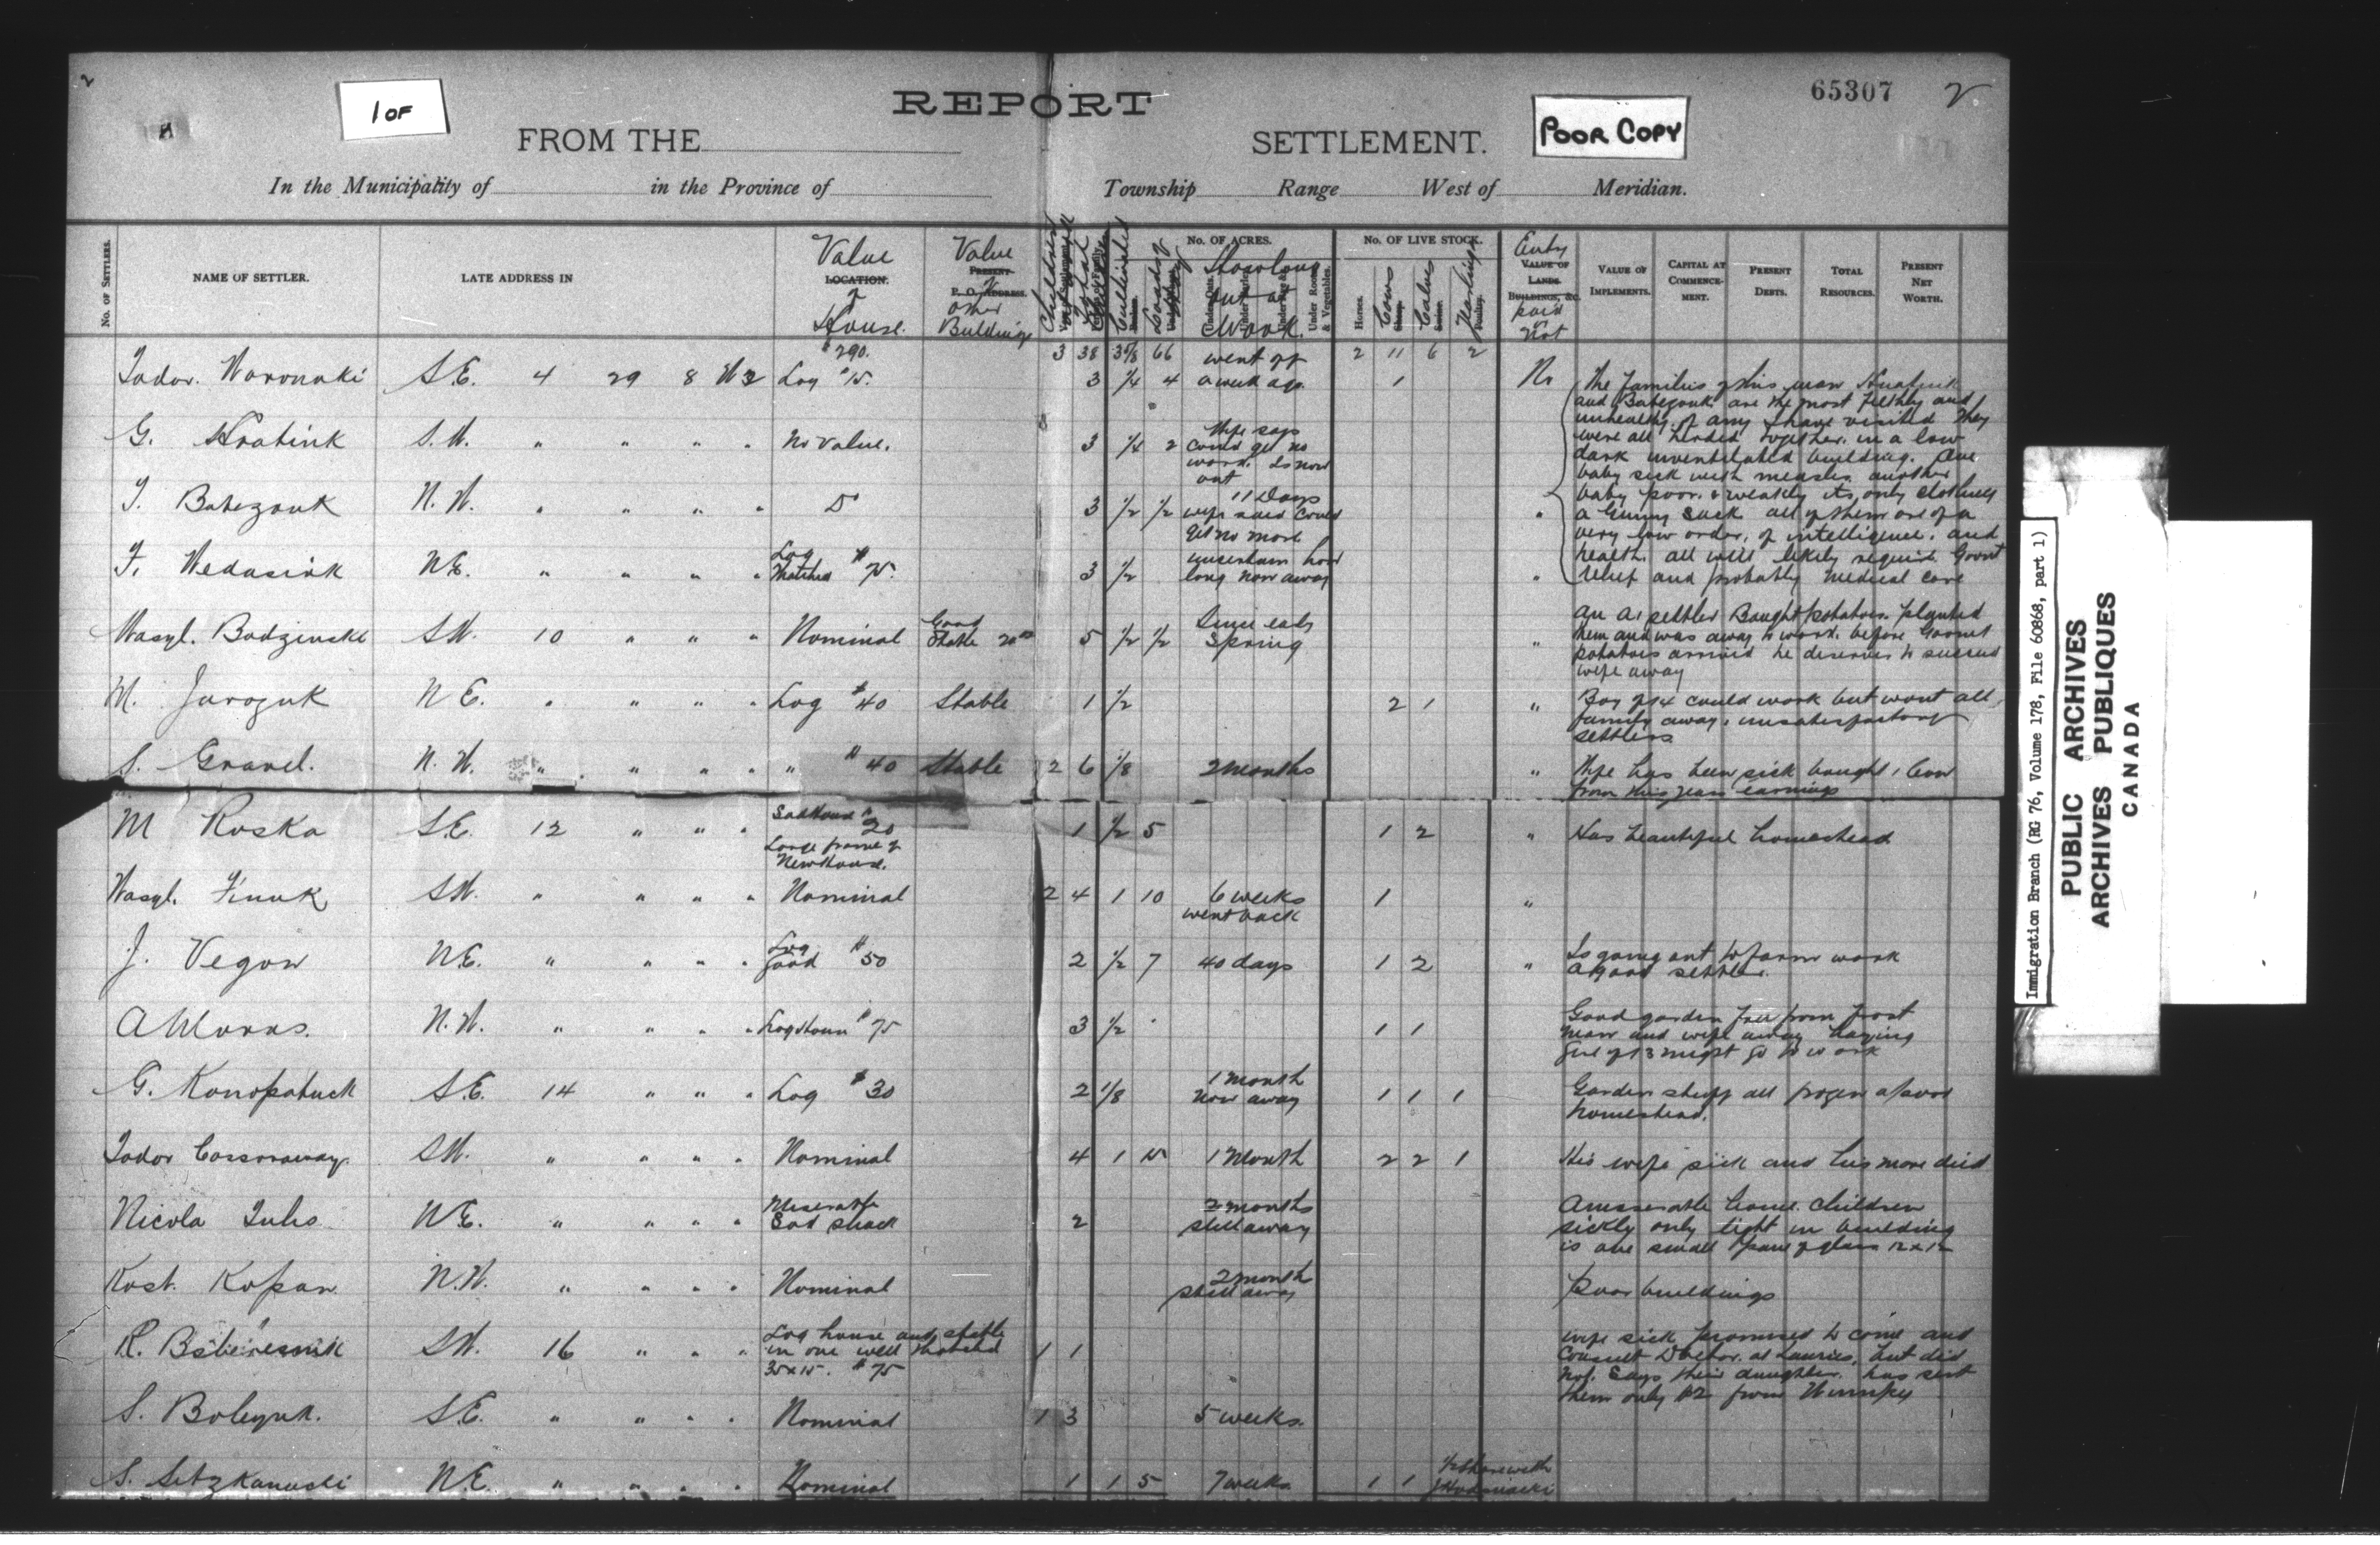 2
1 OF
REPORT
65307 2
FROM THE SETTLEMENT.
POOR COPY
In the Municipality of in the Province of Township Range West of Meridian.
No. OF SETTLERS.
NAME OF SETTLER.
LATE ADDRESS IN
Value LOCATION. of House.
Value PRESENT P. O. ADDRESS. of other Buildings
Children
Cultivated
Loads of Hay
No. OF ACRES.
How long out at Work.
Under Roots & Vegetables.
No. OF LIVE STOCK.
Horses.
Cows Sheep.
Calves Swine.
Yearlings Poultry.
Entry VALUE OF LANDS, BUILDINGS, &c. paid or not
VALUE OF IMPLEMENTS.
CAPITAL AT COMMENCEMENT.
PRESENT DEBTS.
TOTAL RESOURCES.
PRESENT NET WORTH.
$290. 3 38 66 2 11 6 2
Todor. Woronuki S.E. 4 29 8 W2 Log $15. 3 1/4 4 went off a week ago. 1 No
The families of this man Hnatiuk
and Babezouk are the most filthy and
unhealthy of any I have visited They
were all herded together in a low
dark unventilated building. One
baby sick with measles another
baby poor & weakly its only clothing
a Gunny Sack all of them are of a
very low order, of intelligence, and
health. all will likely require Govnt
relief and probably medical care
G. Hnatiuk S.W. " " " " No value. 3 1/4 2 Wife says could get no work. Is now out
T. Babezouk N.W. " " " " Do 3 1/2 1/2 11 Days wife said could get no more "
F. Wedasiuk N.E. " " " " Log Thatched $75. 3 1/2 uncertain how long now away "
Wasyl. Bodzinski S.W. 10 " " " Nominal Good Stable 20.00 5 1/2 1/2 Since early Spring "
An A1 settler Bought potatoes. planted
them and was away to work. before Govnt
potatoes arrived he deserves to succeed
wife away
M. Jarozuk N.E. " " " " Log $40 Stable 1 1/2 2 1 "
Boy of 14 could work but wont all
family away. unsatisfactory
settlers
S. Gravel. N.W. " " " " " $40 Stable 2 6 1/8 2 months "
Wife has been sick bought 1 Cow
from this years earnings
M Roska S.E. 12 " " " Sod house $20 Large frame of New House. 1 1/2 5 1 2 " Has beautiful homestead
Wasyl. Finuk S.W. " " " " Nominal 2 4 1 10 6 weeks went back 1 "
J. Vegow N.E. " " " " Log Good $50 2 1/2 7 40 days 1 2 "
Is going out to farm work
A good settler.
A Woras. N.W. " " " " Log House $75 3 1/2 1 1
Good garden free from frost
Man and wife away haying
Girl of 13 might go to work
G. Konopatuck S.E. 14 " " " Log $30 2 1/8 1 month now away 1 1 1
Garden stuff all frozen a poor
homestead.
Todor S.W. " " " " Nominal 4 1 15 1 Month 2 2 1 His wife sick and his mare died
Nicola N.E. " " " " Miserable Sod shack 2 2 months still away
A miserable home. Children
sickly only light in building
is one small pane of glass 12 x 12
Kost. Kopan N.W. " " " " Nominal 2 month still away Poor buildings
R. S.W. 16 " " " Log house and stable in one well thatched 35x15. $75 1 1
wife sick promised to come and
consult Doctor. at Lauries, but did
not. Says their daughter. has sent
them only $2 from Winnipeg
S. Boleyuk. S.E. " " " " Nominal 1 3 5 weeks.
S. Sitzkanuski N.E. " " " " Nominal 1 1 5 7 weeks 1 1 1/2 share with
Immigration Branch (RG 76, Volume 178, File 60868, part 1)
PUBLIC ARCHIVES
ARCHIVES PUBLIQUES
CANADA